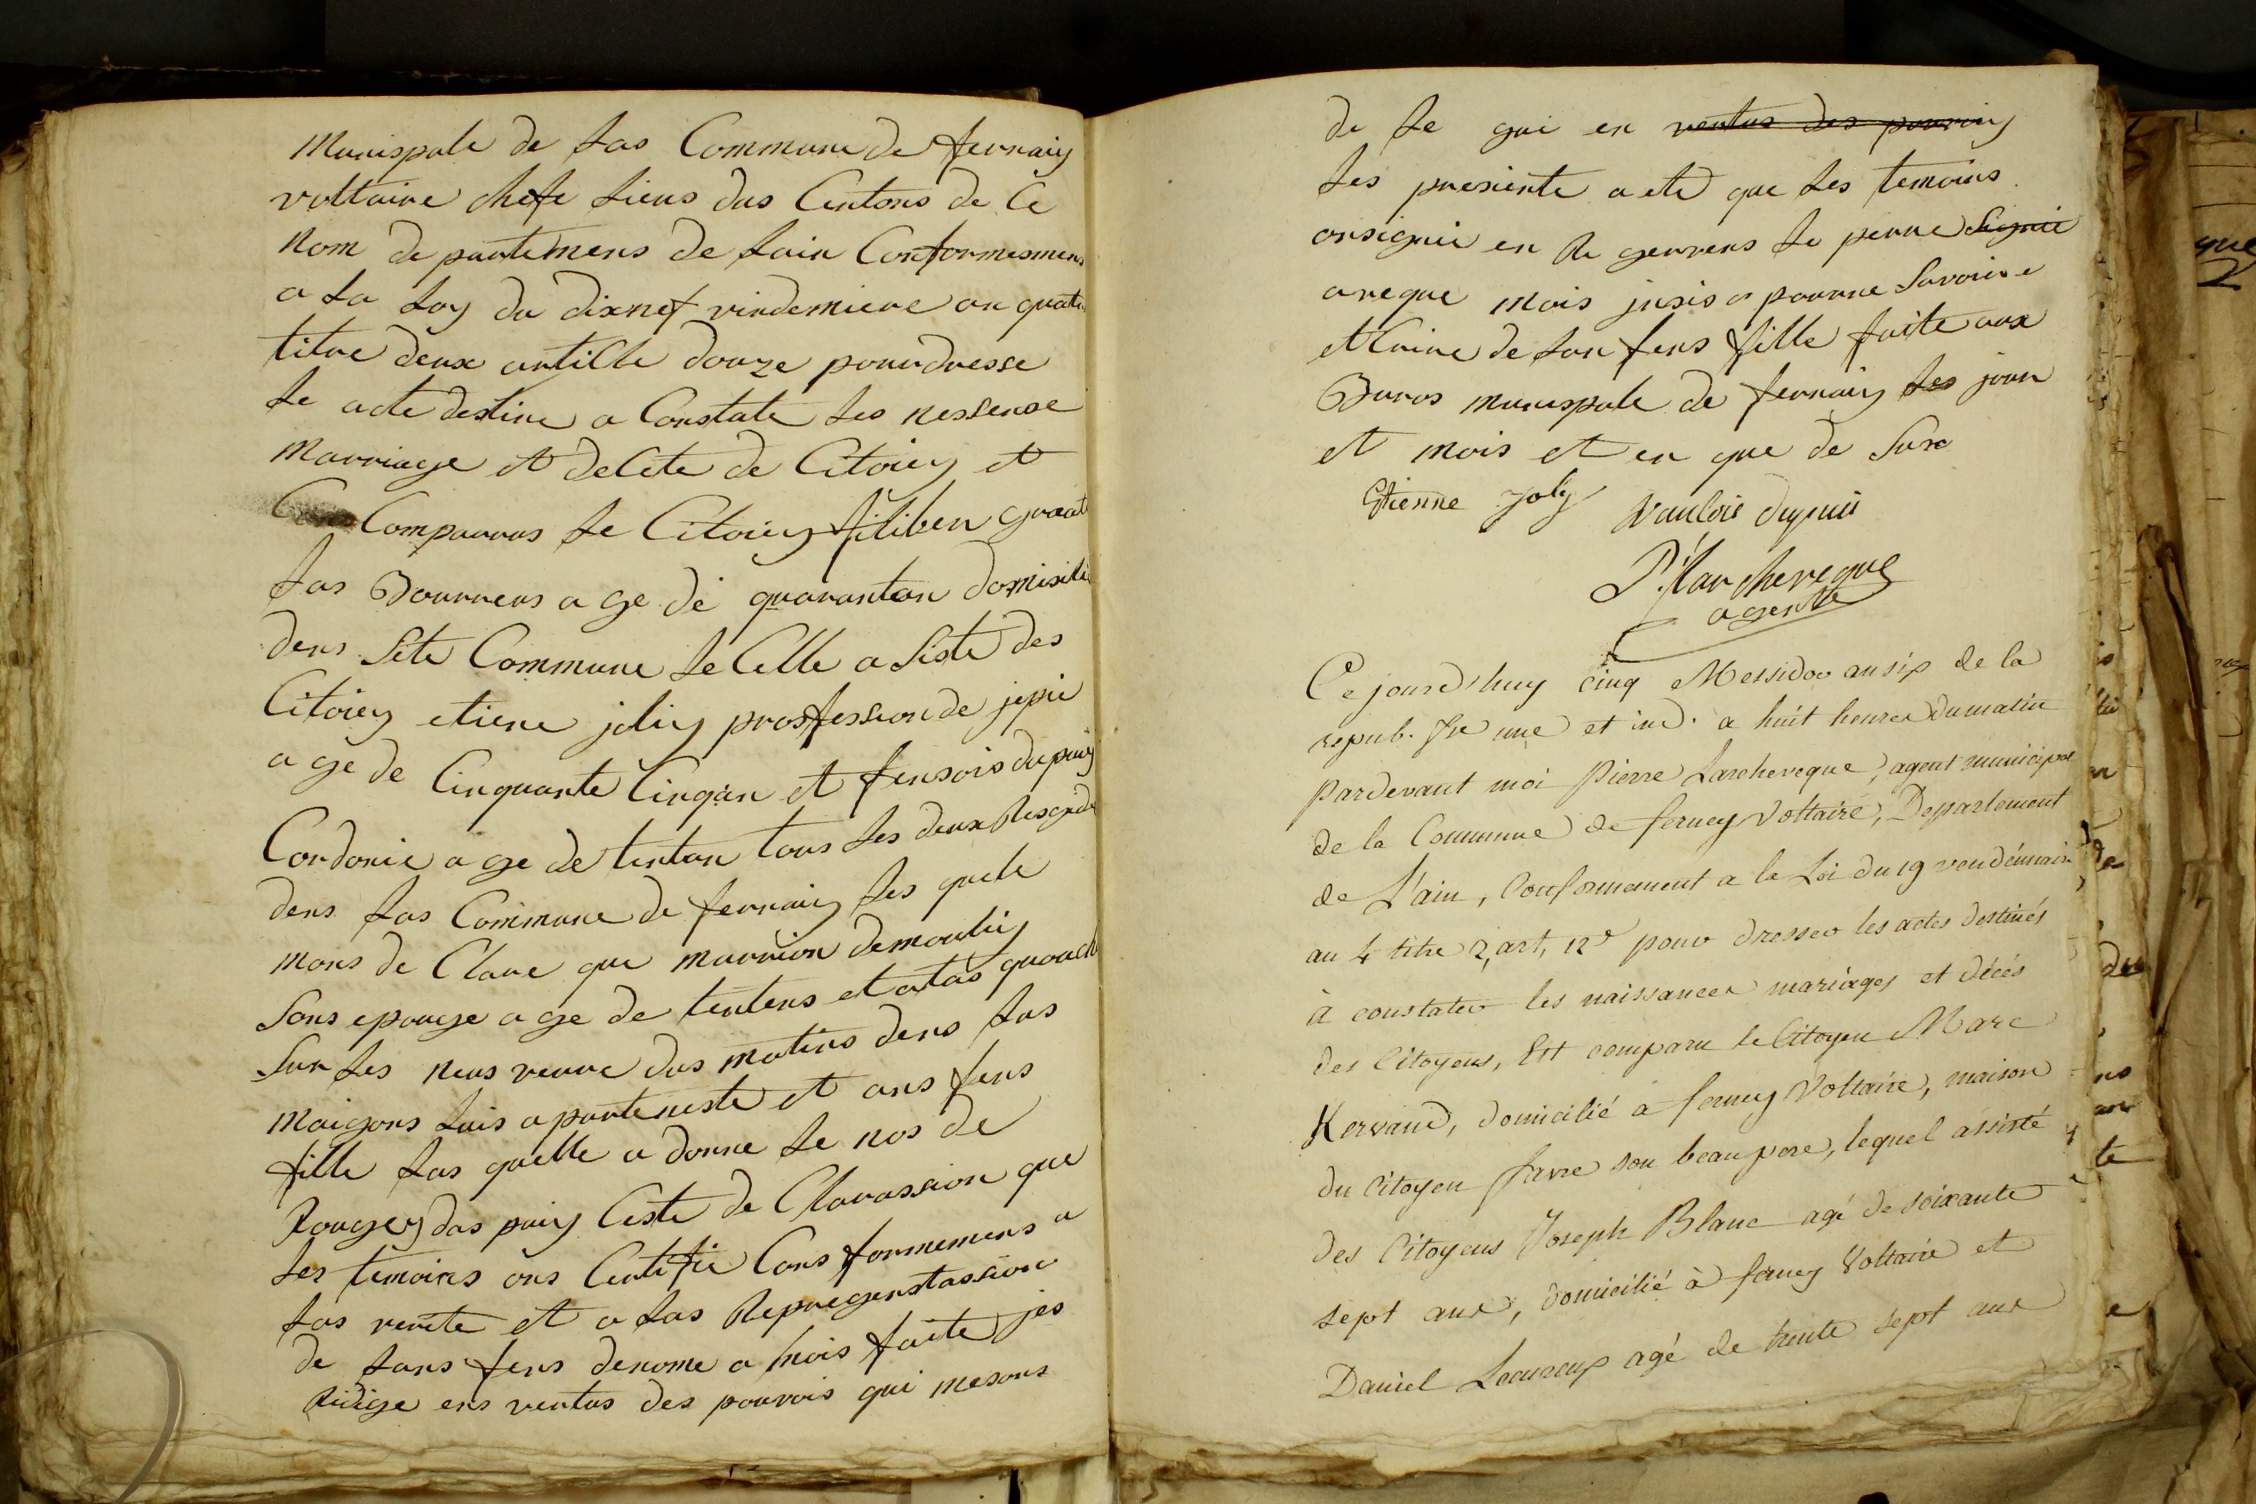 Munispale de las Commune de fernaiy
voltaire chefe liens das Centons de Ce
nom de partemens de lain Conformesmens
a la loy du dixnef vindemiere an quatre
titre deux artille douze pour dresse
le acte destine a Constate les nessense
Marriage et delete de Citoiey et
Comparras le Citoiey filiben graat
las Bourrens age de quarantan domisilie
dens Sete Commune le Celle a Siste des
Citoiey etiene joliy prosfession de jipie
age de Cinquante Cinqan et fensois dupuiy
Cordonie age de tentan tous les deux Resgide
dens las Commune de fernaiy les quele
mons de Clare que marrion demouliy
Sons epouge age de tentens et atas quouche
Sur les neus reure das matins dens las
maigons luis aparteneste et ans fens
fille las quelle a donne le nos de
Rougey das puiy Ceste de Clarassion que
les temoins ons Centifie Cons formemens a
las verite et a las Repregenstassion
de lans fens denome a mois faite jes
Ridige ens ventus des pouvois qui mesons
de le gui en ventus des pouvoiy
les presiente a ete que les temoins
onsignie en Re gervens le perre Signie
areque mois jusis a pourre Savoire
etCrire de lan fens fille faite aux
Buros munispale de fernaiy les jour
et mois et en que de Sux
Etienne joly vauloie dupuis
P. Larcheveque
agente
Ce jourd'huy cinq Messidor an six de la
repub. fre une et ind. a huit heures du matin
pardevant moi Pierre Larcheveque, agent municipal
de la Commune de ferney Voltaire, Departement
de L'ain, Conformement a la Loi du 19 vendémiaire
an 4 titre 2, art, 12e pour dresser les actes destinés
à constater les naissances mariages et décés
des Citoyens, Est comparu le Citoyen Marc
Kervand, domicilié a ferney Voltaire, maison
du Citoyen favre son beau pere, lequel assisté
des Citoyens Joseph Blanc agé de soixante
sept ans, domicilié à ferney Voltaire et
Daniel agé de trente sept ans